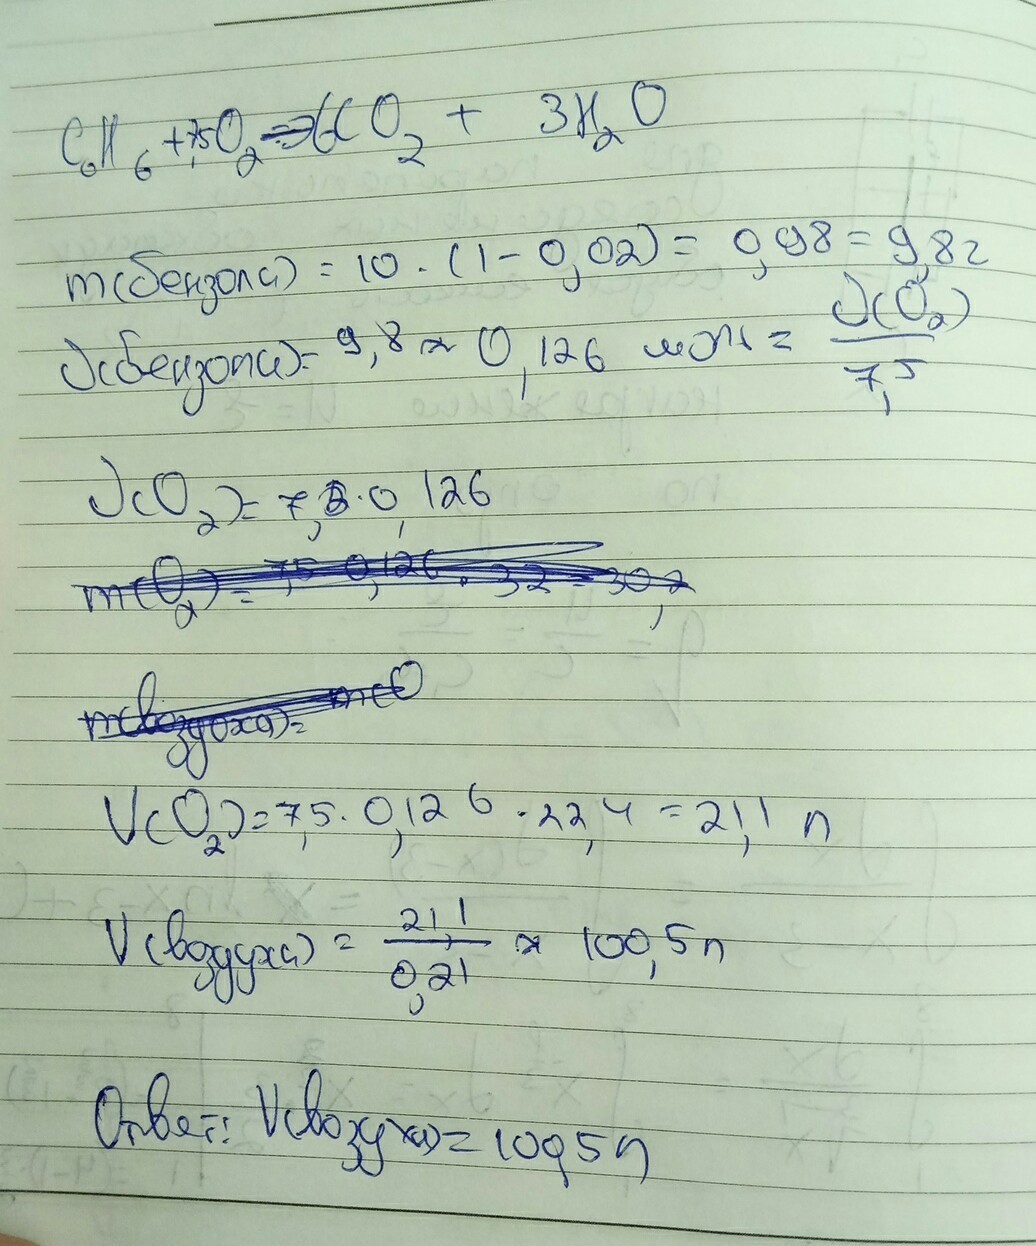 C₆H₆ + 7,5O₂ => 6CO₂ + 3H₂O
m(бензола) = 10 · (1 - 0,02) = 0,98 = 9,8г
ν(бензола) = 9,8 ≈ 0,126 моль = ν(O₂)/7,5
ν(O₂) = 7,5 · 0,126
m(O₂) = 7,5 · 0,126 · 32 = 30,2
m(воздуха) = m(O
V(O₂) = 7,5 · 0,126 · 22,4 = 21,1 л
V(воздуха) = 21,1/0,21 ≈ 100,5 л
Ответ: V(воздуха) = 100,5 л